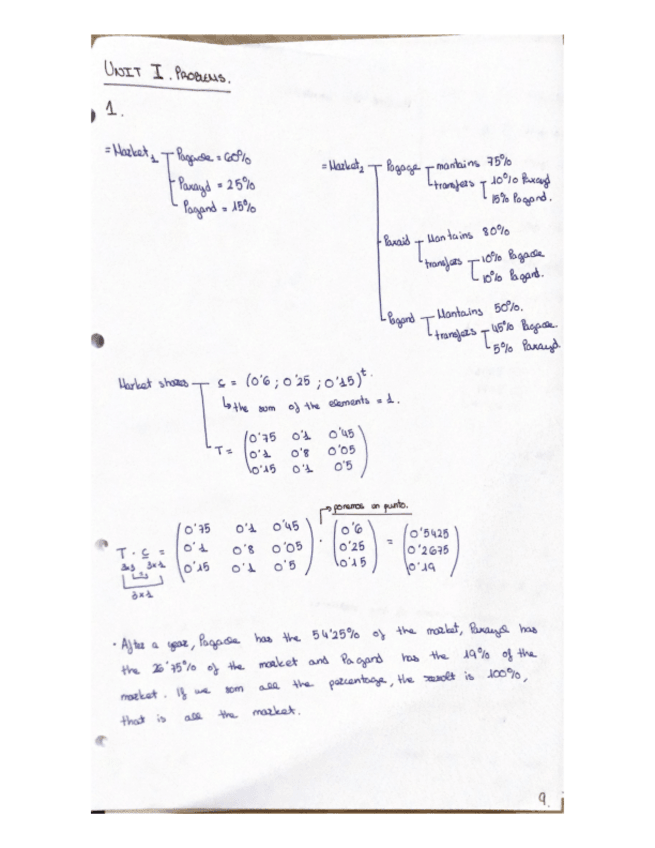 UNIT I. PROBLEMS.
1.
= Market₁ Pagade = 60%
Paxayd = 25%
Pagand = 15%
= Market₂ Pagage mantains 75%
transfers 10% Paxayd
15% Pagand.
Paxaid Mantains 80%
transfers 10% Pagade
10% Pagand.
Pagand Mantains 50%.
transfers 45% Pagade.
5% Paxayd
Market shares c = (0'6 ; 0'25 ; 0'15)ᵗ.
↳ the sum of the elements = 1.
T = (0'75 0'1 0'45
0'1 0'8 0'05
0'15 0'1 0'5)
ponemos un punto.
T · c = (0'75 0'1 0'45
0'1 0'8 0'05
0'15 0'1 0'5) · (0'6
0'25
0'15) = (0'5425
0'2675
0'19)
3x3 3x1
3x1
· After a year, Pagade has the 54'25% of the market, Paxayd has
the 26'75% of the market and Pagand has the 19% of the
market. If we som all the percentage, the result is 100%,
that is all the market.
9